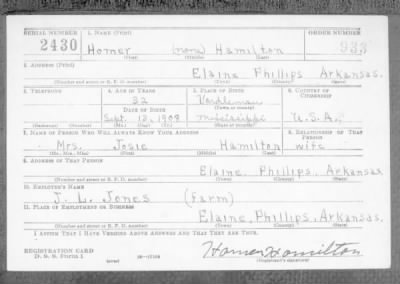 SERIAL NUMBER 1. NAME (Print) ORDER NUMBER
2430 Homer (none) Hamilton 933
(First) (Middle) (Last)
2. ADDRESS (Print)
Elaine, Phillips, Arkansas.
(Number and street or R. F. D. number) (Town) (County) (State)
3. TELEPHONE 4. AGE IN YEARS 5. PLACE OF BIRTH 6. COUNTRY OF CITIZENSHIP
32 Vardleman
DATE OF BIRTH (Town or county)
Sept. 12, 1908 Mississippi U.S.A.
(Exchange) (Number) (Mo.) (Day) (Yr.) (State or country)
7. NAME OF PERSON WHO WILL ALWAYS KNOW YOUR ADDRESS 8. RELATIONSHIP OF THAT PERSON
Mrs. Josie Hamilton wife
(Mr., Mrs., Miss) (First) (Middle) (Last)
9. ADDRESS OF THAT PERSON
Elaine, Phillips, Arkansas
(Number and street or R. F. D. number) (Town) (County) (State)
10. EMPLOYER'S NAME
J. L. Jones (Farm)
11. PLACE OF EMPLOYMENT OR BUSINESS
Elaine, Phillips, Arkansas.
(Number and street or R. F. D. number) (Town) (County) (State)
I AFFIRM THAT I HAVE VERIFIED ABOVE ANSWERS AND THAT THEY ARE TRUE.
REGISTRATION CARD Homer Hamilton
D. S. S. Form 1 (over) (Registrant's signature)